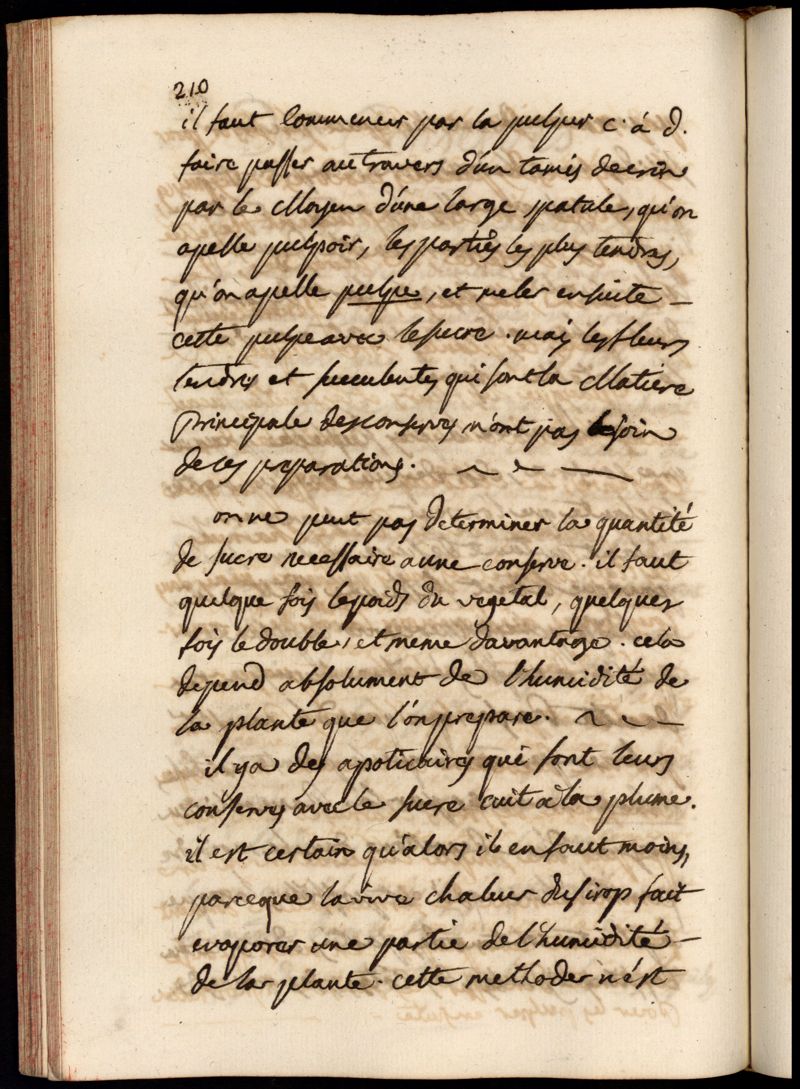 210
il faut commencer par la pulper c. à d.
faire passer autravers d'un tamis de crin
par le Moyen d'une large spatule, qu'on
apelle pulpoir, les parties les plus tendres,
qu'on apelle pulpe, et meler ensuite –
cette pulpe avec le sucre. mais les fleurs
tendres et succulentes qui font la Matiere
Principale des conserves n'ont pas besoin
de ces preparations.
on ne peut pas determiner la quantité
de sucre necessaire a une conserve. il faut
quelque fois le poids du vegetal, quelques
fois le double, et meme davantage. cela
depend absolument de l'humidité de
la plante que l'on prepare.
il y a des apoticaires qui font leurs
conserves avec le sucre cuit a la plume.
il est certain qu'alors il en faut moins,
parceque la vive chaleur du sirop fait
evaporer une partie de l'humidité –
de la plante. cette methode n'est